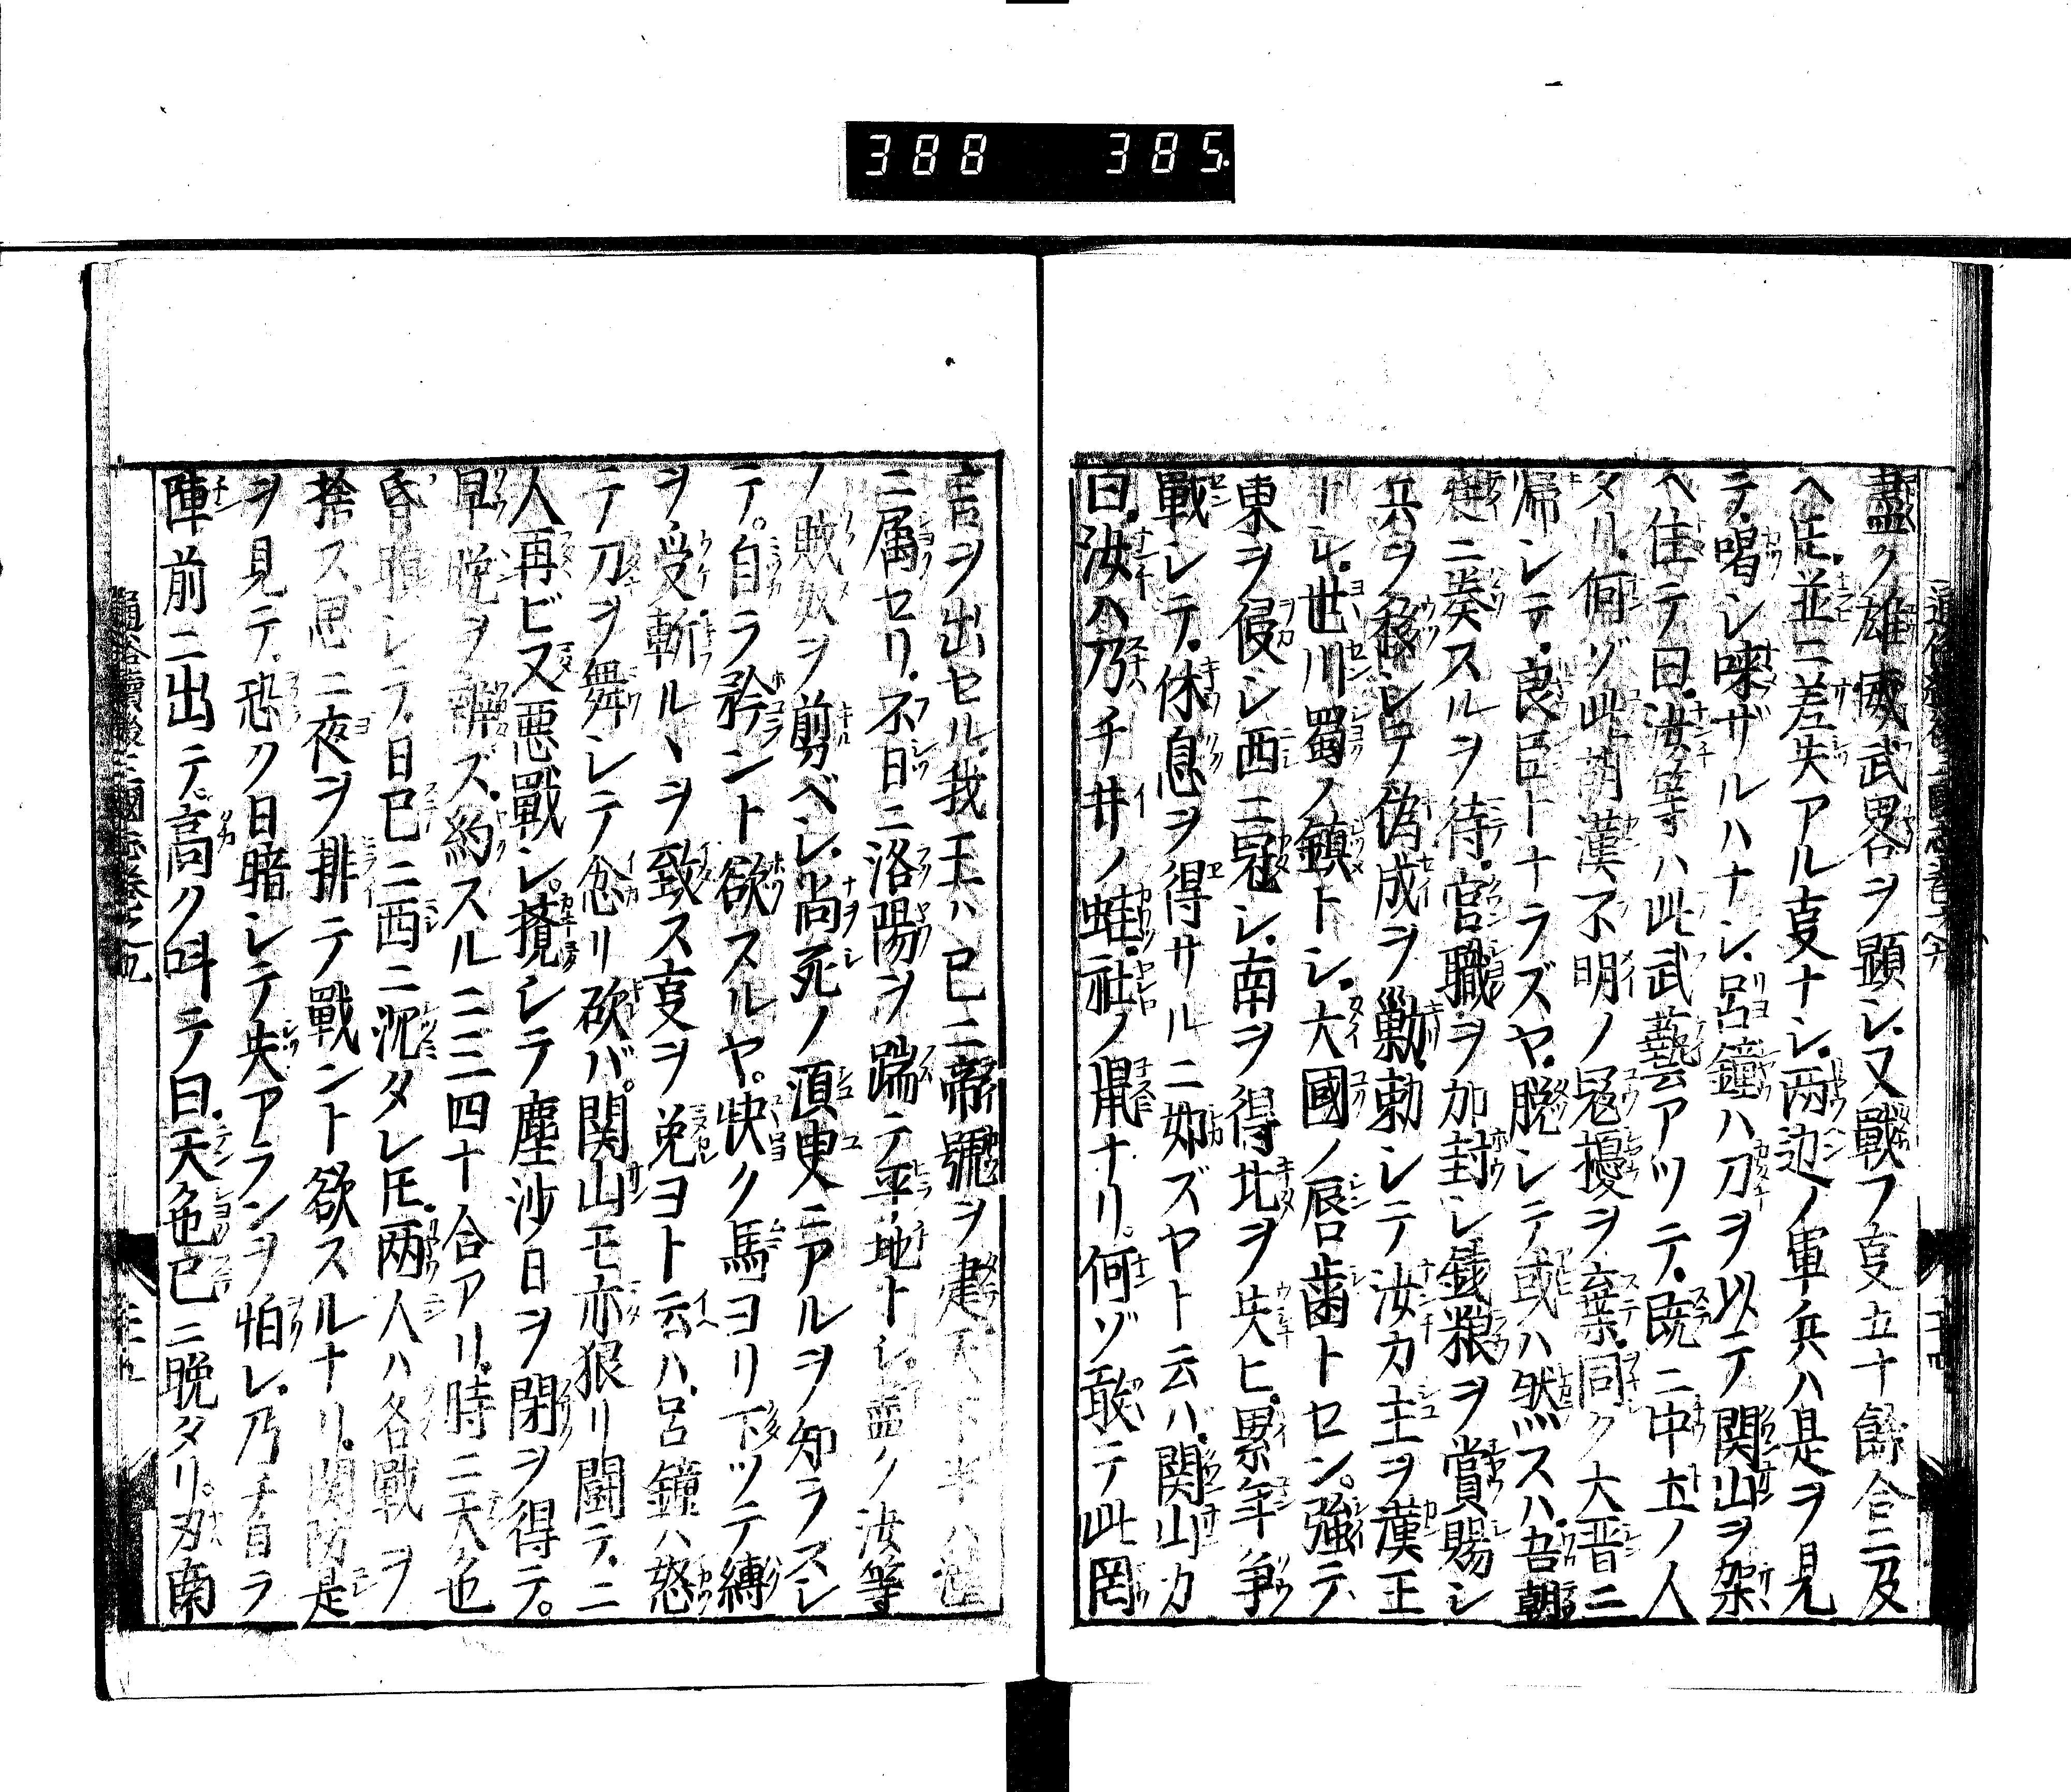 388 385
盡ク雄威武畧ヲ顕シ又戰フ㕝五十餘合ニ及
ヘ𪜈並ニ差失アル㕝ナシ両辺ノ軍兵ハ是ヲ見
テ喝シ唻ザルハナシ呂鐘ハ刀ヲ以テ関山ヲ架
ヘ住テ曰汝等ハ此武藝アツテ既ニ中土ノ人
タリ何ゾ此胡漢不明ノ冦擾ヲ棄同ク大晋ニ
帰シテ良臣トナラズヤ脱シテ或ハ然スハ吾朝
廷ニ奏スルヲ待官職ヲ加封シ錢粮ヲ賞賜シ
兵ヲ移シテ偽成ヲ勦勅シテ汝カ主ヲ漢王
トシ世川蜀ノ鎮トシ大國ノ唇歯トセン強テ
東ヲ侵シ西ニ冦シ南ヲ得北ヲ失ヒ累年争
戰シテ休息ヲ得サルニ如ズヤト云ハ関山カ
曰汝ハ乃チ井ノ蛙社ノ鼠ナリ何ゾ敢テ此罔
言ヲ出セル我王ハ已ニ帝號ヲ建天下半ハ
ニ属セリ不日ニ洛陽ヲ踹テ平地トシ盡ク汝等
ノ賊奴ヲ剪ベシ尚死ノ須臾ニアルヲ知ラスシ
テ自ラ矜ント欲スルヤ快ク馬ヨリ下ツテ縛
ヲ受斬ルヽヲ致ス㕝ヲ免ヨト云ハ呂鐘ハ怒
テ刀ヲ舞シテ忿リ砍バ関山モ亦狠リ闘テ二
人再ビ又惡戰シ攪シテ塵沙日ヲ閉ヲ得テ
早晩ヲ辨ズ約スルニ三四十合アリ時ニ天色
昏暗シテ日已ニ西ニ沉タレ𪜈両人ハ各戰ヲ
捨ス思ニ夜ヲ排テ戰ント欲スルナリ関防是
ヲ見テ恐ク日暗シテ失アランヲ怕レ乃チ自ラ
陣前ニ出テ高ク呌テ曰天色已ニ晩タリ刃南
通俗續後三國志巻之九